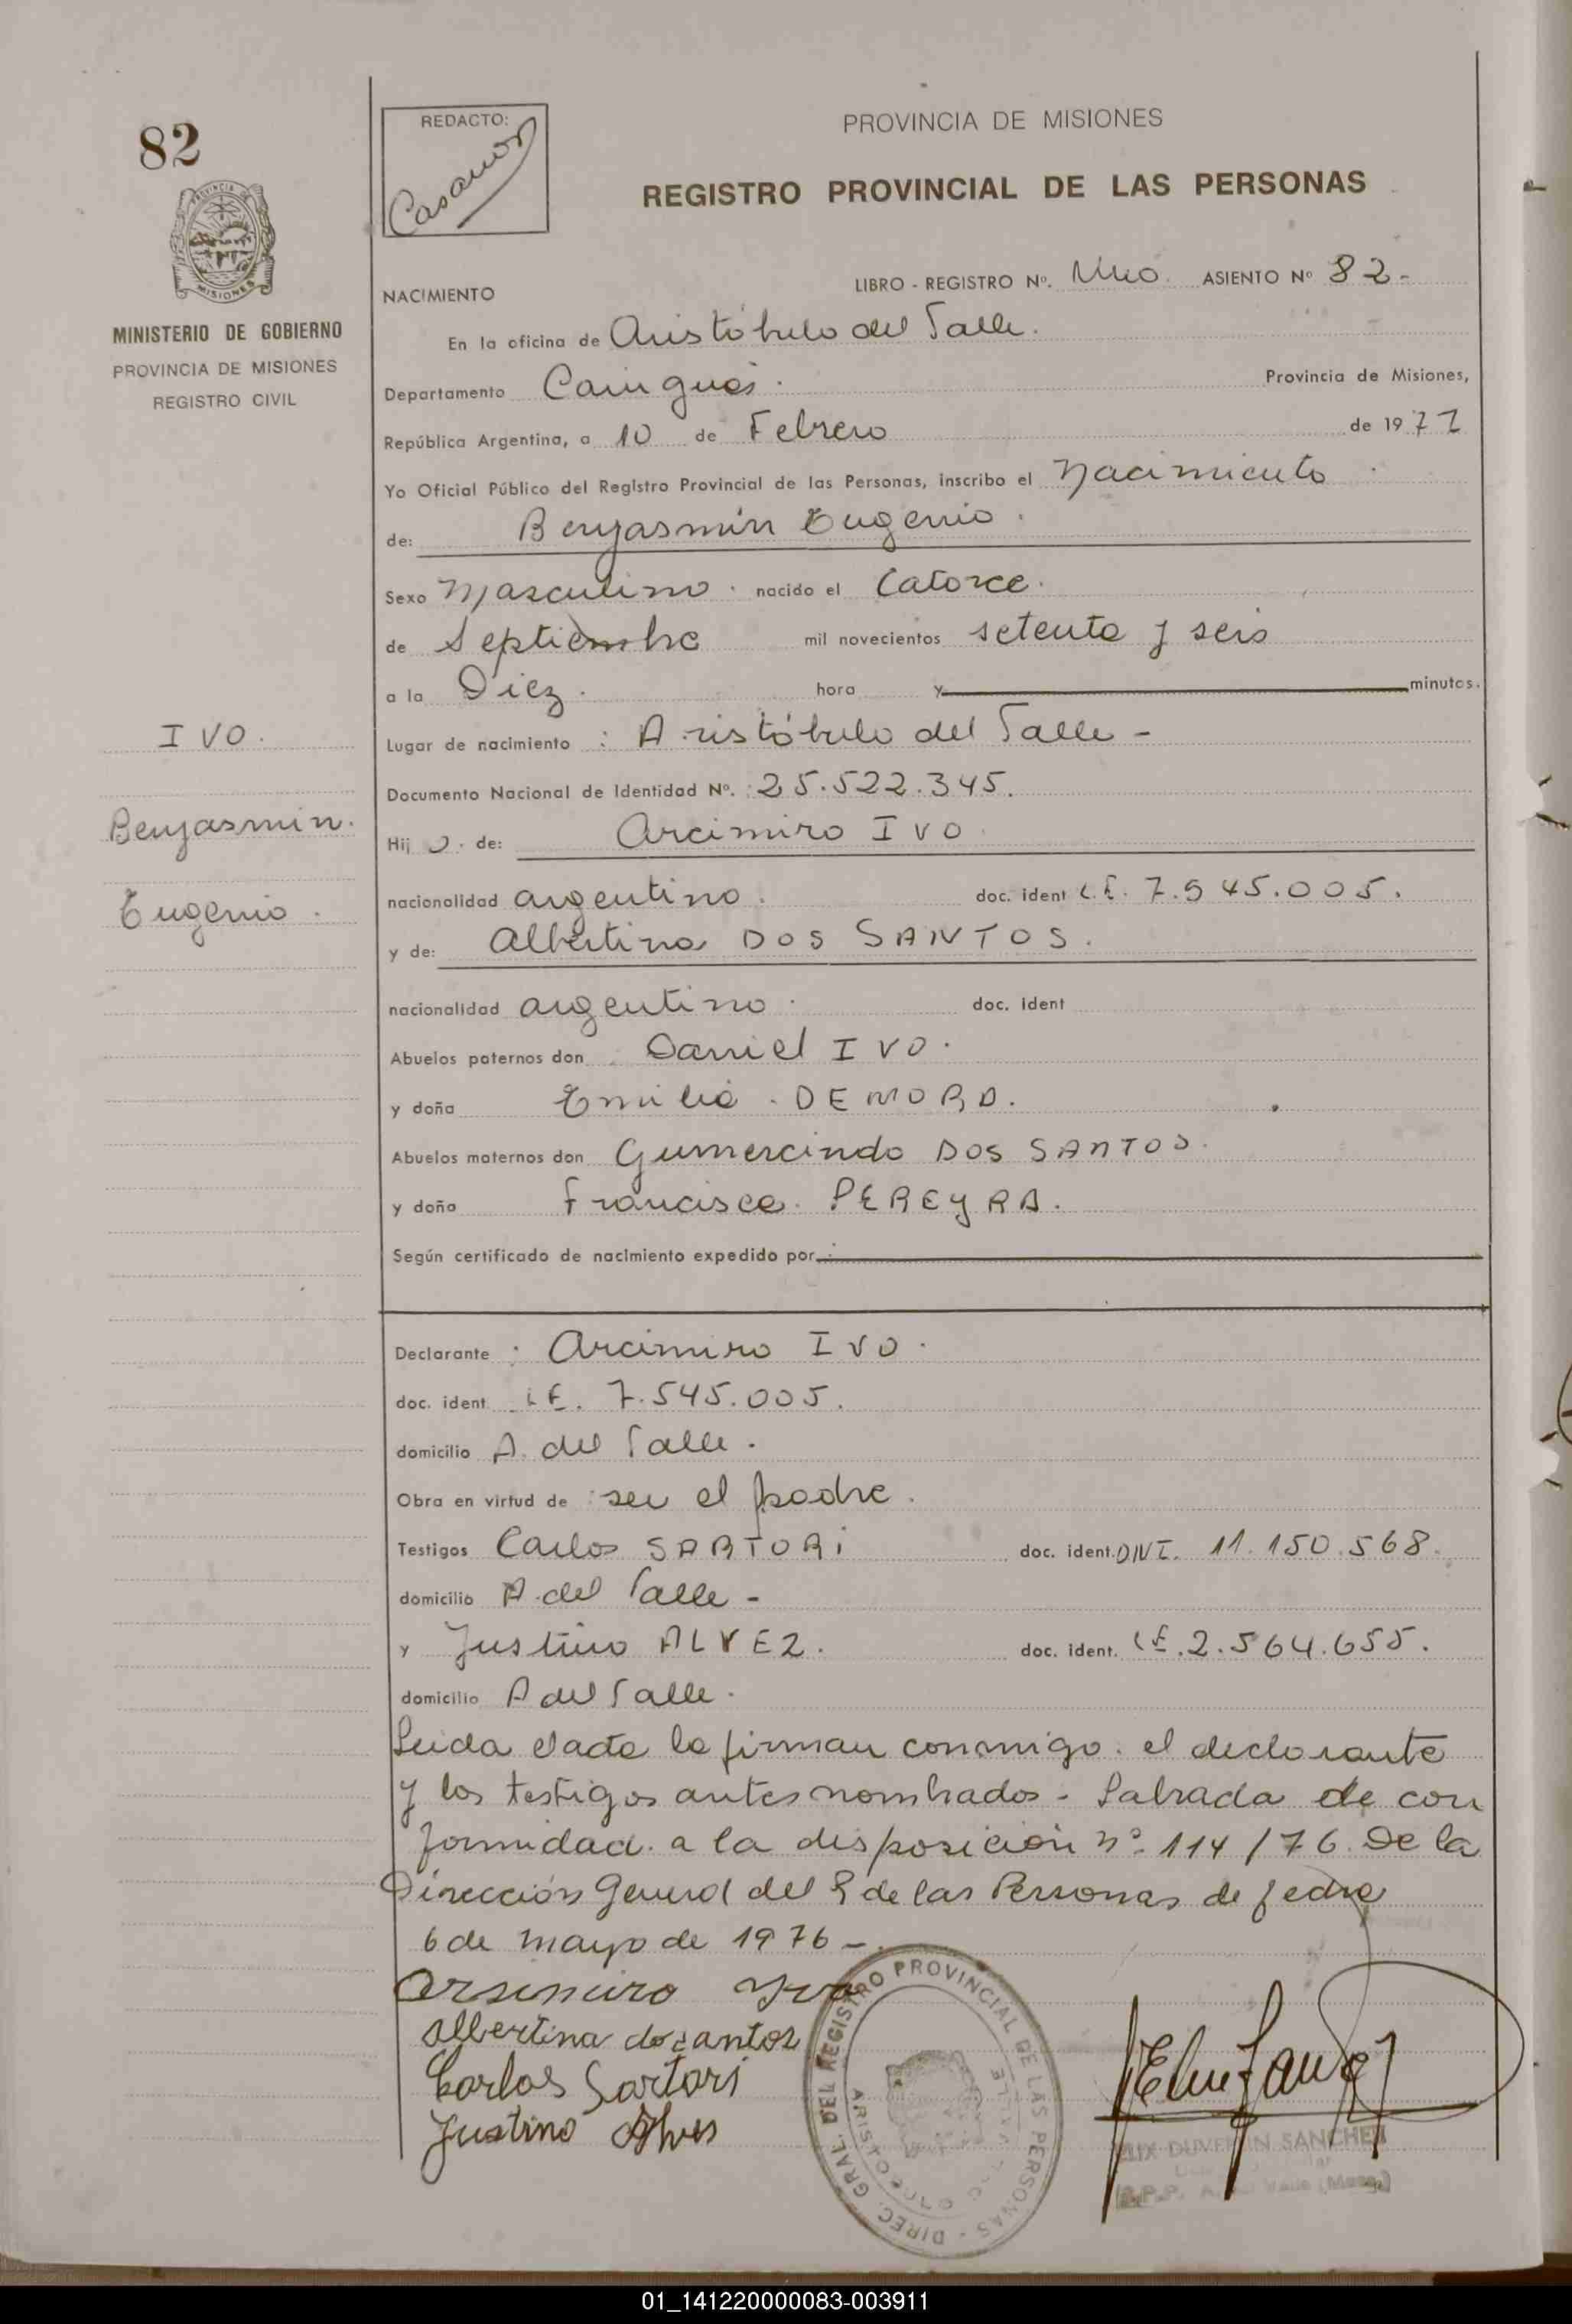 82
REDACTO:
PROVINCIA DE MISIONES
REGISTRO PROVINCIAL DE LAS PERSONAS
PROVINCIA DE
MISIONES
MINISTERIO DE GOBIERNO
PROVINCIA DE MISIONES
REGISTRO CIVIL
NACIMIENTO
LIBRO - REGISTRO Nº. Uno. ASIENTO Nº 82-
En la oficina de Aristóbulo del Valle.
Departamento Cainguás. Provincia de Misiones,
República Argentina, a 10 de Febrero de 1977
Yo Oficial Público del Registro Provincial de las Personas, inscribo el Nacimiento
de: Benjasmín Eugenio.
Sexo Masculino. nacido el Catorce.
de Septiembre mil novecientos setenta y seis
a la Diez. hora y minutos.
Lugar de nacimiento : Aristóbulo del Valle -
Documento Nacional de Identidad Nº. : 25.522.345.
Hij o. de: Arcimiro IVO.
nacionalidad argentino. doc. ident L.E. 7.545.005.
y de: Albertina DOS SANTOS.
nacionalidad argentino. doc. ident
Abuelos paternos don Daniel IVO.
y doña Emilia. DEMORA.
Abuelos maternos don Gumercindo DOS SANTOS.
y doña Francisca. PEREYRA.
Según certificado de nacimiento expedido por
IVO.
Benjasmín.
Eugenio.
Declarante : Arcimiro IVO.
doc. ident L.E. 7.545.005.
domicilio A. del Valle.
Obra en virtud de : ser el padre.
Testigos Carlos SARTORI doc. ident. DNI. 11.150.568.
domicilio A. del Valle -
y Justino ALVEZ. doc. ident. L.E. 2.564.655.
domicilio A del Valle.
Leida el acta la firman conmigo. el declarante
y los testigos antes nombrados - Labrada de con
formidad. a la disposición nº. 114/76. De la
Dirección General del R de las Personas de fecha
6 de mayo de 1976 -
Arsimiro Ivo
albertina dozantos
Carlos Sartori
Justino Alves
DIREC. GRAL. DEL REGISTRO PROVINCIAL DE LAS PERSONAS
ARISTOBULO DEL VALLE
SANCHEZ
01_141220000083-003911